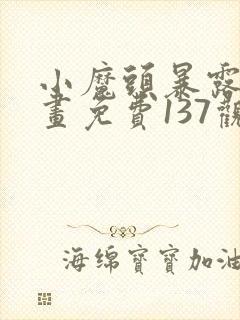 小魔頭暴露
畫免費137觀
海绵寶寶加油